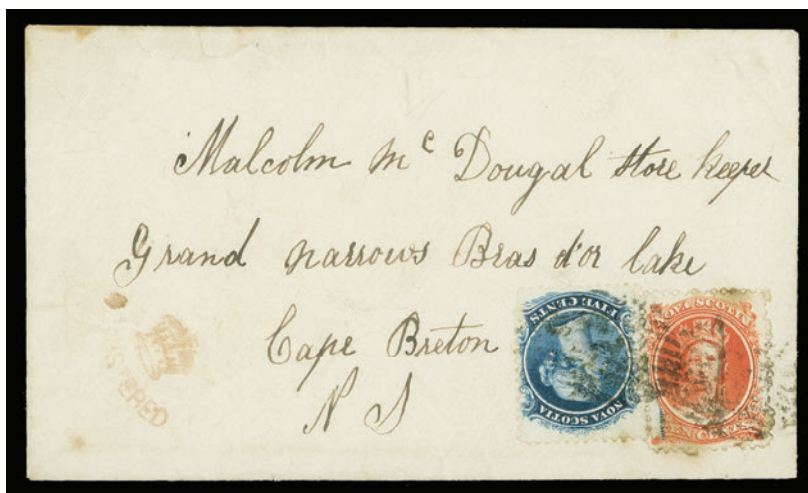 Malcolm Mc Dougal Store Keeper
Grand narrows Bras d'or lake
Cape Breton
N S
FIVE CENTS
NOVA SCOTIA
NOVA SCOTIA
CENTS